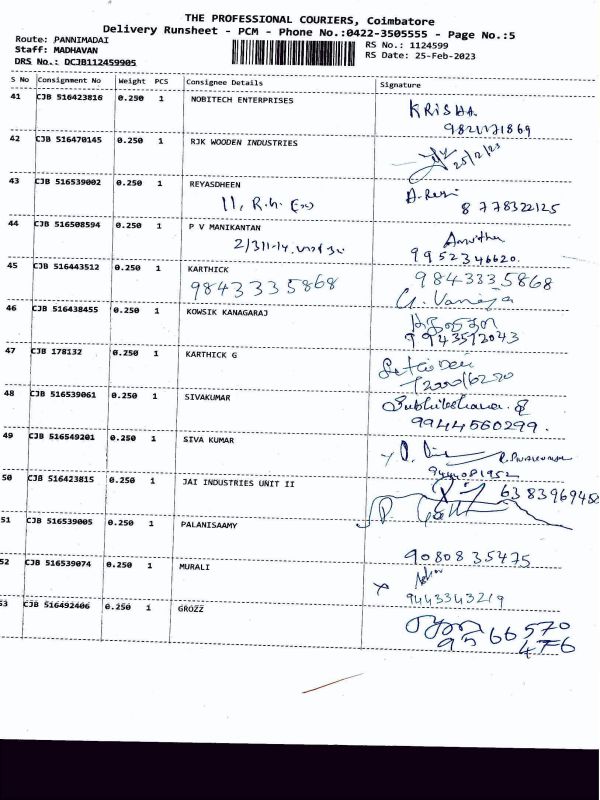 THE PROFESSIONAL COURIERS, Coimbatore
Delivery Runsheet - PCM - Phone No.:0422-3505555 - Page No.:5
Route: PANNIMADAI
Staff: MADHAVAN
DRS No.: DCJB112459905
RS No.: 1124599
RS Date: 25-Feb-2023
S No Consignment No Weight PCS Consignee Details Signature
41 CJB 516423816 0.250 1 NOBITECH ENTERPRISES KRISHA
9821171869
42 CJB 516470145 0.250 1 RJK WOODEN INDUSTRIES 25/2/23
43 CJB 516539002 0.250 1 REYASDHEEN
11, R.h.
8778322125
44 CJB 516508594 0.250 1 P V MANIKANTAN
9952346620.
45 CJB 516443512 0.250 1 KARTHICK
9843335868 9843335868
46 CJB 516438455 0.250 1 KOWSIK KANAGARAJ
9943512043
47 CJB 178132 0.250 1 KARTHICK G
48 CJB 516539061 0.250 1 SIVAKUMAR
9944560299.
49 CJB 516549201 0.250 1 SIVA KUMAR
50 CJB 516423815 0.250 1 JAI INDUSTRIES UNIT II
51 CJB 516539005 0.250 1 PALANISAAMY
9080835475
52 CJB 516539074 0.250 1 MURALI
9443343219
53 CJB 516492406 0.250 1 GROZZ
9566570
476